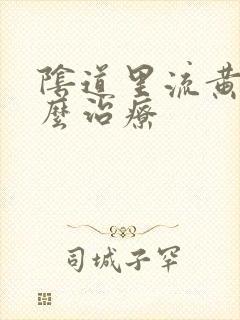 陰道里流黃
麼治療
司城子罕